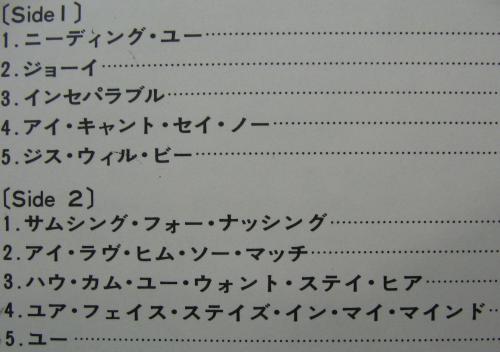 〔Side 1〕
1.ニーディング・ユー
2.ジョーイ
3.インセパラブル
4.アイ・キャント・セイ・ノー
5.ジス・ウィル・ビー
〔Side 2〕
1.サムシング・フォー・ナッシング
2.アイ・ラヴ・ヒム・ソー・マッチ
3.ハウ・カム・ユー・ウォント・ステイ・ヒア
4.ユア・フェイス・ステイズ・イン・マイ・マインド
5.ユー